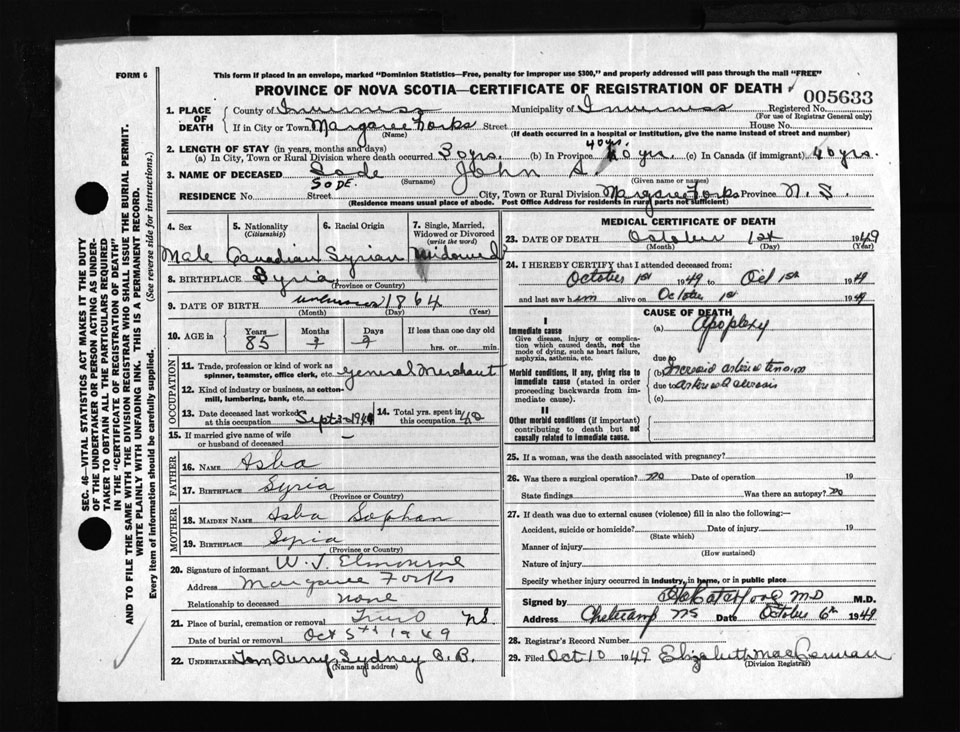 FORM 6
This form if placed in an envelope, marked "Dominion Statistics—Free, penalty for improper use $300," and properly addressed will pass through the mail "FREE"
PROVINCE OF NOVA SCOTIA—CERTIFICATE OF REGISTRATION OF DEATH
005633
SEC. 46—VITAL STATISTICS ACT MAKES IT THE DUTY
OF THE UNDERTAKER OR PERSON ACTING AS UNDER-
TAKER TO OBTAIN ALL THE PARTICULARS REQUIRED
IN THE "CERTIFICATE OF REGISTRATION OF DEATH"
AND TO FILE THE SAME WITH THE DIVISION REGISTRAR WHO SHALL ISSUE THE BURIAL PERMIT.
WRITE PLAINLY WITH UNFADING INK. THIS IS A PERMANENT RECORD.
Every item of information should be carefully supplied. (See reverse side for instructions.)
1. PLACE OF DEATH County of Inverness Municipality of Inverness Registered No.
(For use of Registrar General only)
If in City or Town Margaree Forks Street House No.
(Name) (If death occurred in a hospital or institution, give the name instead of street and number)
2. LENGTH OF STAY (in years, months and days) 40 yrs.
(a) In City, Town or Rural Division where death occurred 30 yrs. (b) In Province 40 yrs (c) In Canada (if immigrant) 40 yrs.
3. NAME OF DECEASED Sode John A.
SODE. (Surname) (Given name or names)
RESIDENCE No. Street City, Town or Rural Division Margaree Forks Province N. S.
(Residence means usual place of abode. Post Office Address for residents in rural parts not sufficient)
4. Sex 5. Nationality (Citizenship) 6. Racial Origin 7. Single, Married, Widowed or Divorced (write the word)
Male Canadian Syrian Widowed
8. BIRTHPLACE Syria
(Province or Country)
9. DATE OF BIRTH unknown 1864
(Month) (Day) (Year)
10. AGE in Years Months Days If less than one day old
85 ? ? hrs. or min.
OCCUPATION
11. Trade, profession or kind of work as spinner, teamster, office clerk, etc. General Merchant
12. Kind of industry or business, as cotton-mill, lumbering, bank, etc.
13. Date deceased last worked at this occupation Sept 1949 14. Total yrs. spent in this occupation 40
15. If married give name of wife or husband of deceased —
FATHER
16. NAME Asba
17. BIRTHPLACE Syria
(Province or Country)
MOTHER
18. MAIDEN NAME Asba Sophan
19. BIRTHPLACE Syria
(Province or Country)
20. Signature of informant W. J.
Address Margaree Forks
Relationship to deceased none
21. Place of burial, cremation or removal Truro NS.
Date of burial or removal Oct 5th 1949
22. UNDERTAKER Tom Curry, Sydney C. B.
(Name and address)
MEDICAL CERTIFICATE OF DEATH
23. DATE OF DEATH October 1st 1949
(Month) (Day) (Year)
24. I HEREBY CERTIFY that I attended deceased from:
October 1st 1949 to Oct 1st 1949
and last saw him alive on October 1st 1949
CAUSE OF DEATH
I
Immediate cause (a) Apoplexy
Give disease, injury or complica-
tion which caused death, not the
mode of dying, such as heart failure,
asphyxia, asthenia, etc. due to
Morbid conditions, if any, giving rise to (b) Increased arterial tension
immediate cause (stated in order due to
proceeding backwards from im-
mediate cause). (c)
II
Other morbid conditions (if important)
contributing to death but not
causally related to immediate cause.
25. If a woman, was the death associated with pregnancy?
26. Was there a surgical operation? no Date of operation 19
State findings Was there an autopsy? no
27. If death was due to external causes (violence) fill in also the following:—
Accident, suicide or homicide? Date of injury 19
(State which)
Manner of injury
(How sustained)
Nature of injury
Specify whether injury occurred in industry, in home, or in public place
Signed by M D M.D.
Address Cheticamp NS Date October 6th 1949
28. Registrar's Record Number
29. Filed Oct 10 1949 Elizabeth MacLennan
(Division Registrar)